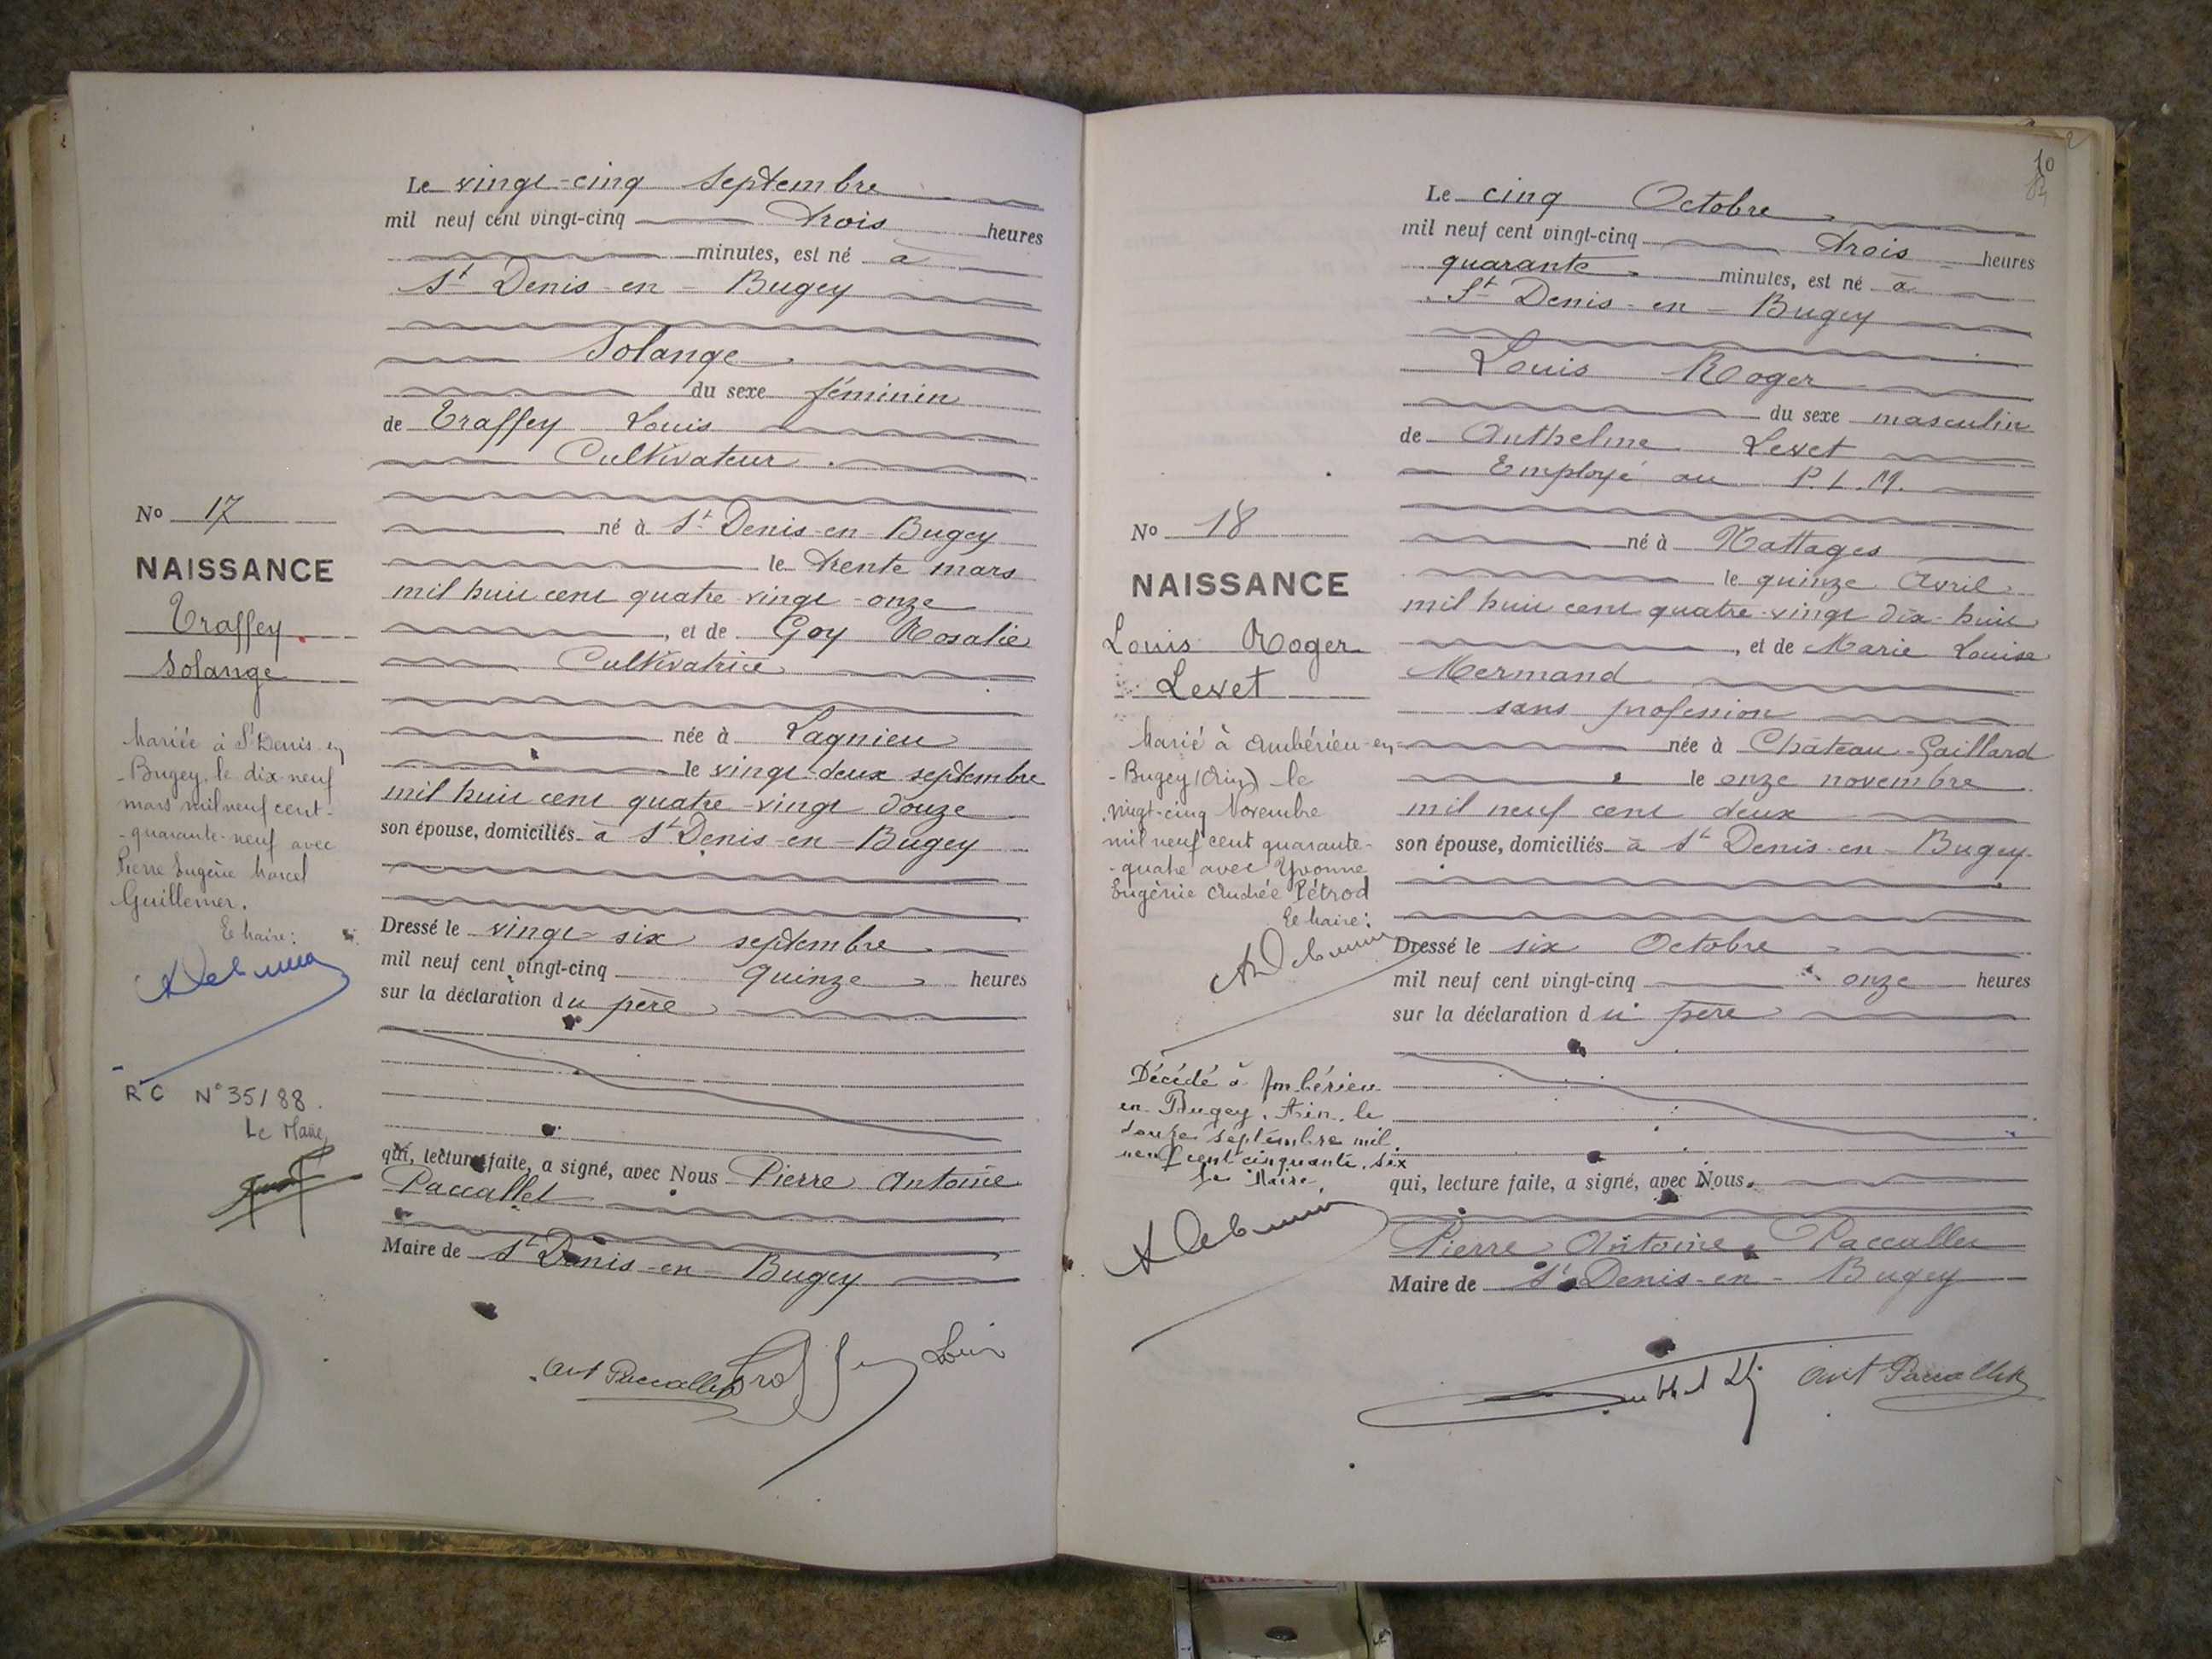 Le vingt-cinq Septembre
mil neuf cent vingt-cinq trois heures
minutes, est né à
St Denis-en-Bugey
Solange
du sexe féminin
de Traffey Louis
Cultivateur
né à St Denis-en-Bugey
le trente mars
mil huit cent quatre-vingt-onze
, et de Goy Rosalie
Cultivatrice
née à Lagnieu
le vingt-deux septembre
mil huit cent quatre-vingt douze
son épouse, domiciliés à St Denis-en-Bugey
Dressé le vingt-six septembre
mil neuf cent vingt-cinq quinze heures
sur la déclaration du père
qui, lecture faite, a signé, avec Nous Pierre Antoine
Paccallet
Maire de St Denis-en-Bugey
Ant Paccallet Traffey Louis
No 17
NAISSANCE
Traffey
Solange
Mariée à St Denis en
-Bugey, le dix-neuf
mars mil neuf cent-
-quarante-neuf avec
Pierre Eugène Marcel
Guillemer.
Le Maire:
RC N°35/88.
Le Maire,
10
Le cinq Octobre
mil neuf cent vingt-cinq trois heures
quarante minutes, est né à
St Denis-en-Bugey
Louis Roger
du sexe masculin
de Anthelme Levet
Employé au P.L.M.
né à Nattages
le quinze Avril
mil huit cent quatre-vingt dix-huit
, et de Marie Louise
Mermand
sans profession
née à Château-Gaillard
le onze novembre
mil neuf cent deux
son épouse, domiciliés à St Denis-en-Bugey
Dressé le six Octobre
mil neuf cent vingt-cinq onze heures
sur la déclaration du père
qui, lecture faite, a signé, avec Nous
Pierre Antoine Paccallet
Maire de St Denis-en-Bugey
Ant Paccallet
No 18
NAISSANCE
Louis Roger
Levet
Marié à Ambérieu-en-
-Bugey (Ain) le
vingt-cinq Novembre
mil neuf cent quarante-
-quatre avec Yvonne
Eugénie Andrée Pétrod
Le Maire:
Décédé à Ambérieu
en Bugey, Ain, le
douze septembre mil
neuf cent cinquante-six
Le Maire,